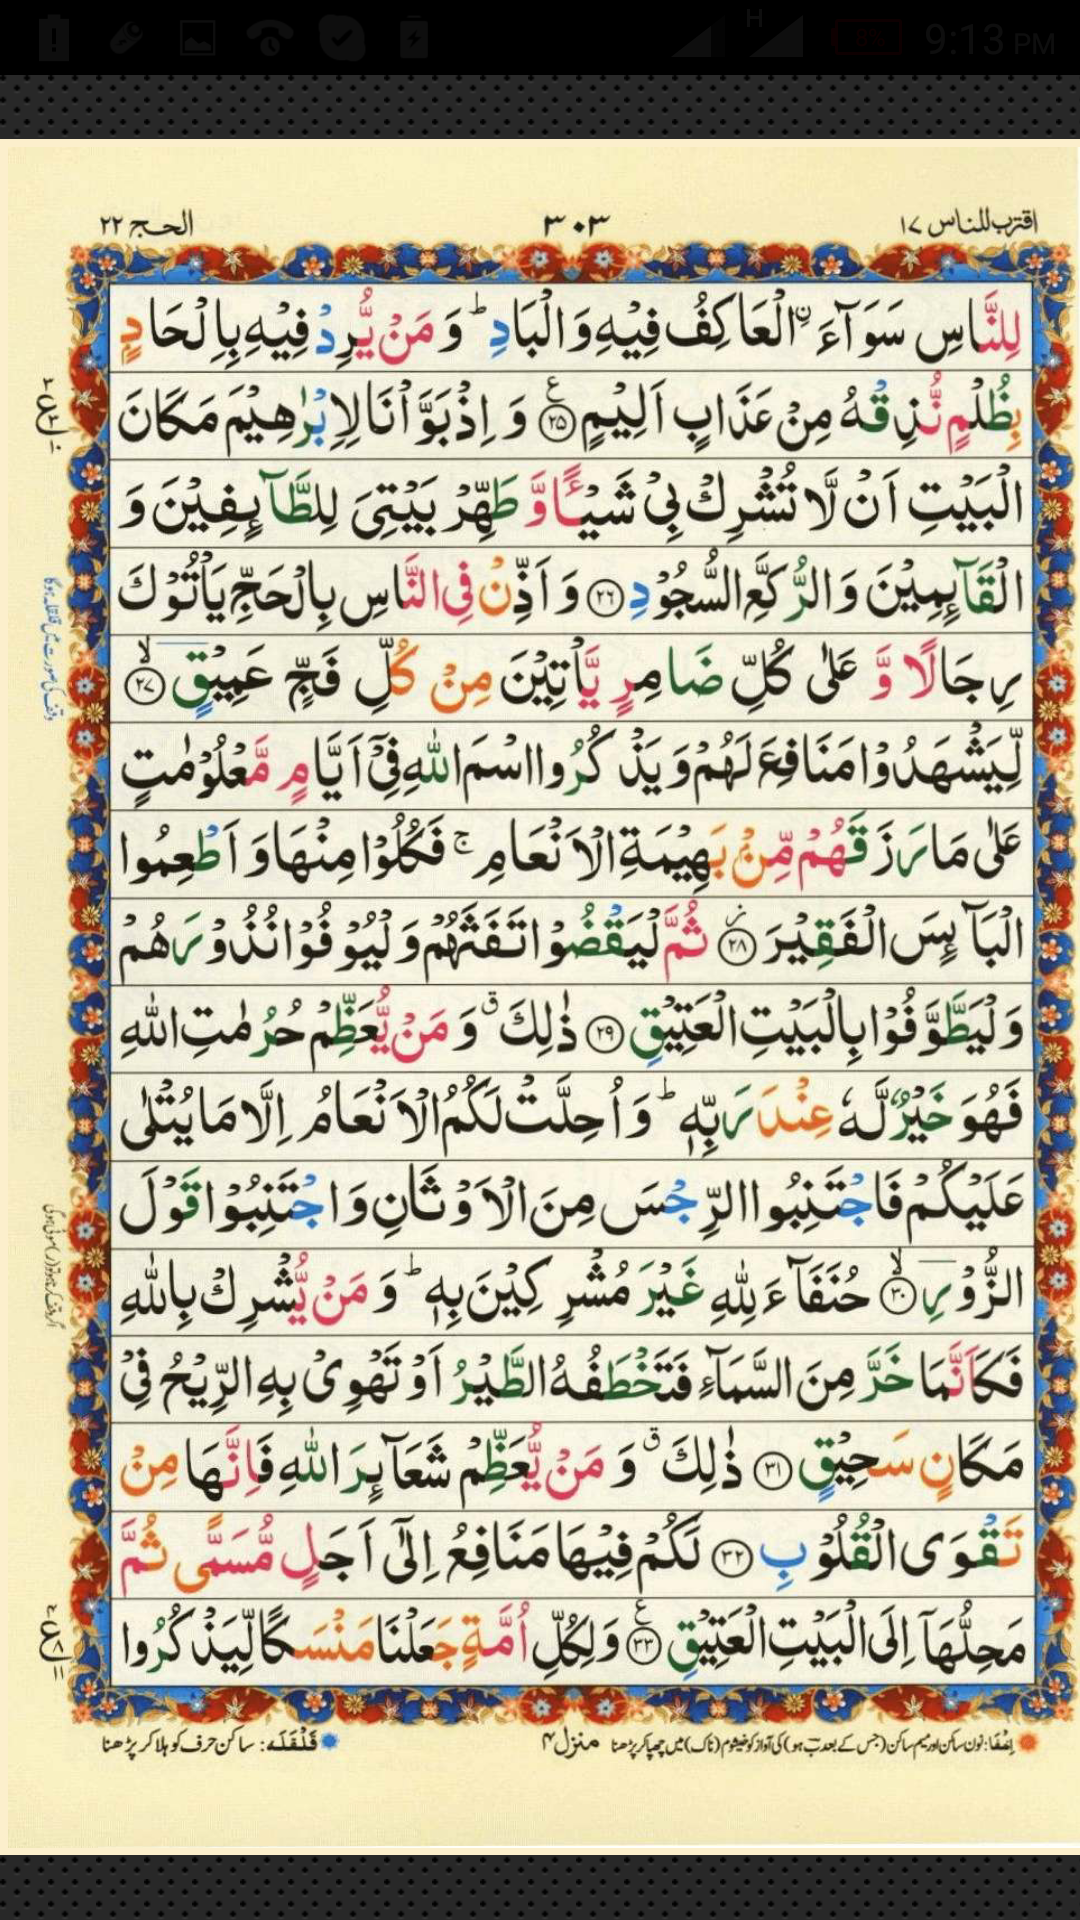 H 8% 9:13 PM
اقترب للناس ۱۷ ۳۰۳ الحج ۲۲
لِلنَّاسِ سَوَآءَ ۨالْعَاكِفُ فِيْهِ وَالْبَادِ ؕ وَ مَنْ يُّرِدْ فِيْهِ بِاِلْحَادٍۭ
بِظُلْمٍ نُّذِقْهُ مِنْ عَذَابٍ اَلِيْمٍ ﴿۲۵﴾ وَ اِذْ بَوَّاْنَا لِاِبْرٰهِيْمَ مَكَانَ
الْبَيْتِ اَنْ لَّا تُشْرِكْ بِيْ شَيْـًٔا وَّ طَهِّرْ بَيْتِيَ لِلطَّآئِفِيْنَ وَ
الْقَآئِمِيْنَ وَالرُّكَّعِ السُّجُوْدِ ﴿۲۶﴾ وَ اَذِّنْ فِي النَّاسِ بِالْحَجِّ يَاْتُوْكَ
رِجَالًا وَّ عَلٰى كُلِّ ضَامِرٍ يَّاْتِيْنَ مِنْ كُلِّ فَجٍّ عَمِيْقٍ ﴿۲۷﴾ ۙ
لِّيَشْهَدُوْا مَنَافِعَ لَهُمْ وَ يَذْكُرُوا اسْمَ اللّٰهِ فِيْٓ اَيَّامٍ مَّعْلُوْمٰتٍ
عَلٰى مَا رَزَقَهُمْ مِّنْۢ بَهِيْمَةِ الْاَنْعَامِ ۚ فَكُلُوْا مِنْهَا وَ اَطْعِمُوا
الْبَآئِسَ الْفَقِيْرَ ﴿۲۸﴾ ثُمَّ لْيَقْضُوْا تَفَثَهُمْ وَ لْيُوْفُوْا نُذُوْرَهُمْ
وَ لْيَطَّوَّفُوْا بِالْبَيْتِ الْعَتِيْقِ ﴿۲۹﴾ ذٰلِكَ ۗ وَ مَنْ يُّعَظِّمْ حُرُمٰتِ اللّٰهِ
فَهُوَ خَيْرٌ لَّهٗ عِنْدَ رَبِّهٖ ؕ وَ اُحِلَّتْ لَكُمُ الْاَنْعَامُ اِلَّا مَا يُتْلٰى
عَلَيْكُمْ فَاجْتَنِبُوا الرِّجْسَ مِنَ الْاَوْثَانِ وَ اجْتَنِبُوْا قَوْلَ
الزُّوْرِ ﴿۳۰﴾ ۙ حُنَفَآءَ لِلّٰهِ غَيْرَ مُشْرِكِيْنَ بِهٖ ؕ وَ مَنْ يُّشْرِكْ بِاللّٰهِ
فَكَاَنَّمَا خَرَّ مِنَ السَّمَآءِ فَتَخْطَفُهُ الطَّيْرُ اَوْ تَهْوِيْ بِهِ الرِّيْحُ فِيْ
مَكَانٍ سَحِيْقٍ ﴿۳۱﴾ ذٰلِكَ ۗ وَ مَنْ يُّعَظِّمْ شَعَآئِرَ اللّٰهِ فَاِنَّهَا مِنْ
تَقْوَى الْقُلُوْبِ ﴿۳۲﴾ لَكُمْ فِيْهَا مَنَافِعُ اِلٰٓى اَجَلٍ مُّسَمًّى ثُمَّ
مَحِلُّهَآ اِلَى الْبَيْتِ الْعَتِيْقِ ﴿۳۳﴾ وَ لِكُلِّ اُمَّةٍ جَعَلْنَا مَنْسَكًا لِّيَذْكُرُوا
اِخفَا: نون ساکن اور میم ساکن (جس کے بعد بٓ ہو) کی آواز کو خیشوم (ناک) میں چھپا کر پڑھنا منزل ۴ قَلْقَلَه: ساکن حرف کو ہلا کر پڑھنا